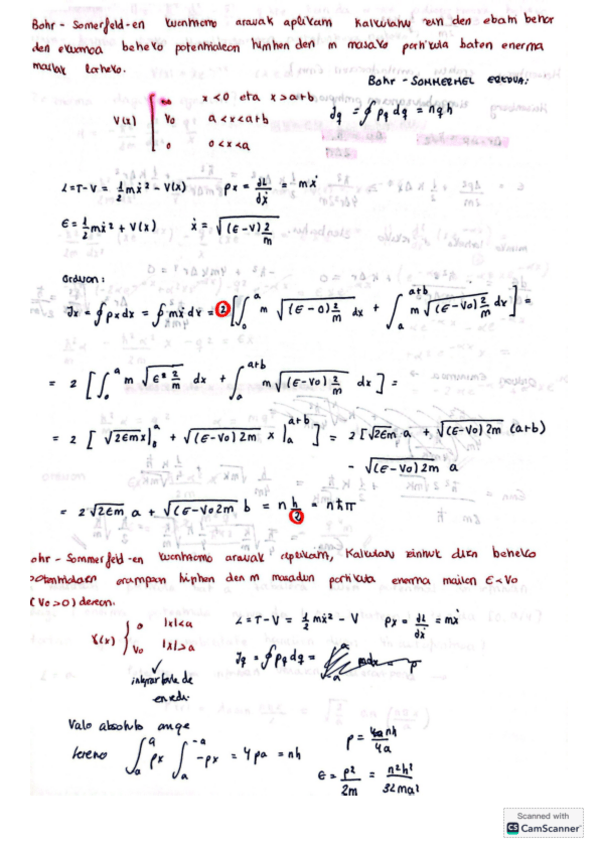 Bohr - Somerfeld-en kuantizazio arauak aplikatu kalkulatu zein den ebatzi behar
den ekuazioa beheko potentzialean higitzen den m masako partikula baten energia
mailak lortzeko.
Bohr - SOMMERMEL EREDUA:
V(x) { ∞ x<0 eta x>a+b
V0 a<x<a+b
0 0<x<a
Jq = ∮ pq dq = nqh
L=T-V = 1/2 mẋ² - V(x) px = ∂L/∂ẋ = mẋ
E = 1/2 mẋ² + V(x) ẋ = √((E-V) 2/m)
Orduan:
Jx = ∮ px dx = ∮ mẋ dx = 2 [ ∫₀^a m √((E-0) 2/m) dx + ∫_a^{a+b} m √((E-V0) 2/m) dx ] =
= 2 [ ∫₀^a m √(E · 2/m) dx + ∫_a^{a+b} m √((E-V0) 2/m) dx ] =
= 2 [ √(2Em) x |₀^a + √((E-V0) 2m) x |_a^{a+b} ] = 2 [ √(2Em) a + √((E-V0) 2m) (a+b)
- √((E-V0) 2m) a
= 2 √(2Em) a + √((E-V0) 2m) b = n h/2 = nħπ
Bohr - Sommerfeld-en kuantizazio arauak aplikatuz, kalkulatu zeintzuk diren beheko
potentzialaren eraginpean higitzen den m masadun partikula energia mailak E<V0
(V0>0) denean.
V(x) { 0 |x|<a
V0 |x|>a
L=T-V = 1/2 mẋ² - V px = ∂L/∂ẋ = mẋ
Jq = ∮ pq dq =
integrar borde de
en medio
Valo absolutu
∫_a^a px ∫_a^{-a} -px = 4pa = nh
p = nh/4a
E = p²/2m = n²h²/32ma²
Scanned with
CS CamScanner